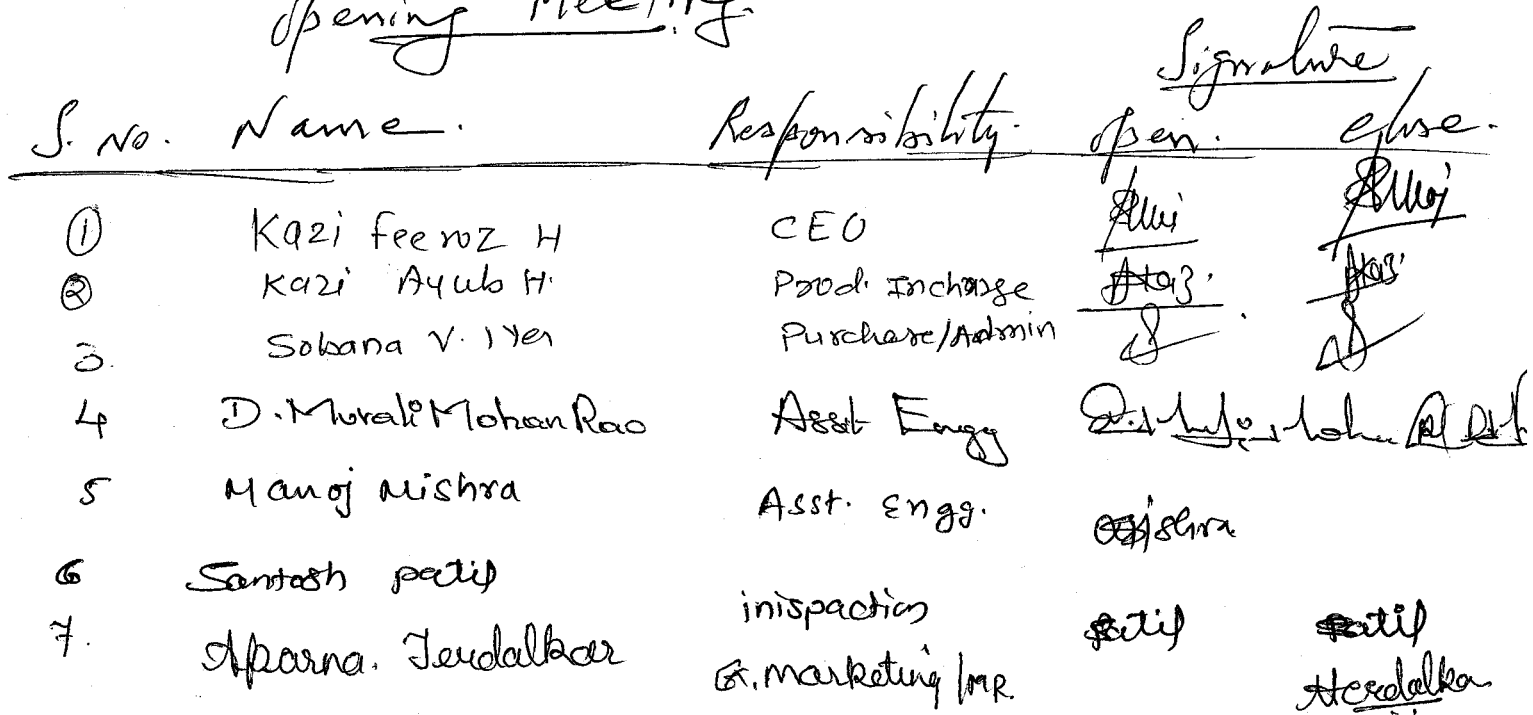 Opening Meeting.
Signature
S. No. Name. Responsibility. open. close.
① Kazi Feeroz H CEO
② Kazi Ayub H. Prod. Incharge
3. Sobana V. Iyer Purchase/Admin
4 D. Murali Mohan Rao Asst Engg
5 Manoj Mishra Asst. Engg. Mishra
6 Santosh patil inispaction patil patil
7. Aparna. Terdalkar G. Marketing/MR. Aterdalkar